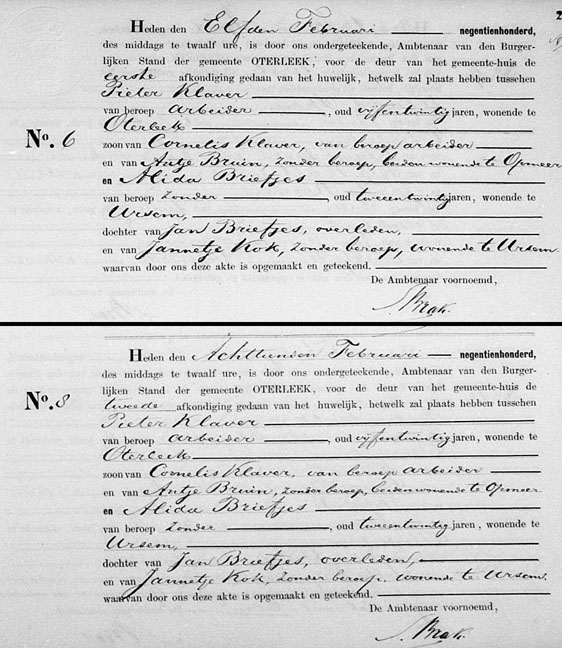 Heden den Elfden Februari negentienhonderd,
des middags te twaalf ure, is door ons ondergeteekende, Ambtenaar van den Burger-
lijken Stand der gemeente OTERLEEK, voor de deur van het gemeente-huis de
eerste afkondiging gedaan van het huwelijk, hetwelk zal plaats hebben tusschen
Pieter Klaver
van beroep arbeider, oud vijfentwintig jaren, wonende te
Oterleek
No. 6
zoon van Cornelis Klaver, van beroep arbeider
en van Antje Bruin, zonder beroep, beiden wonende te Opmeer
en Alida Briefjes
van beroep zonder, oud tweeentwintig jaren, wonende te
Ursem,
dochter van Jan Briefjes, overleden,
en van Jannetje Kok, zonder beroep, wonende te Ursem
waarvan door ons deze akte is opgemaakt en geteekend.
De Ambtenaar voornoemd,
Heden den Achttienden Februari negentienhonderd,
des middags te twaalf ure, is door ons ondergeteekende, Ambtenaar van den Burger-
lijken Stand der gemeente OTERLEEK, voor de deur van het gemeente-huis de
No. 8
tweede afkondiging gedaan van het huwelijk, hetwelk zal plaats hebben tusschen
Pieter Klaver
van beroep arbeider, oud vijfentwintig jaren, wonende te
Oterleek
zoon van Cornelis Klaver, van beroep arbeider
en van Antje Bruin, zonder beroep, beiden wonende te Opmeer
en Alida Briefjes
van beroep zonder, oud tweeentwintig jaren, wonende te
Ursem,
dochter van Jan Briefjes, overleden,
en van Jannetje Kok, zonder beroep, wonende te Ursem.
waarvan door ons deze akte is opgemaakt en geteekend.
De Ambtenaar voornoemd,